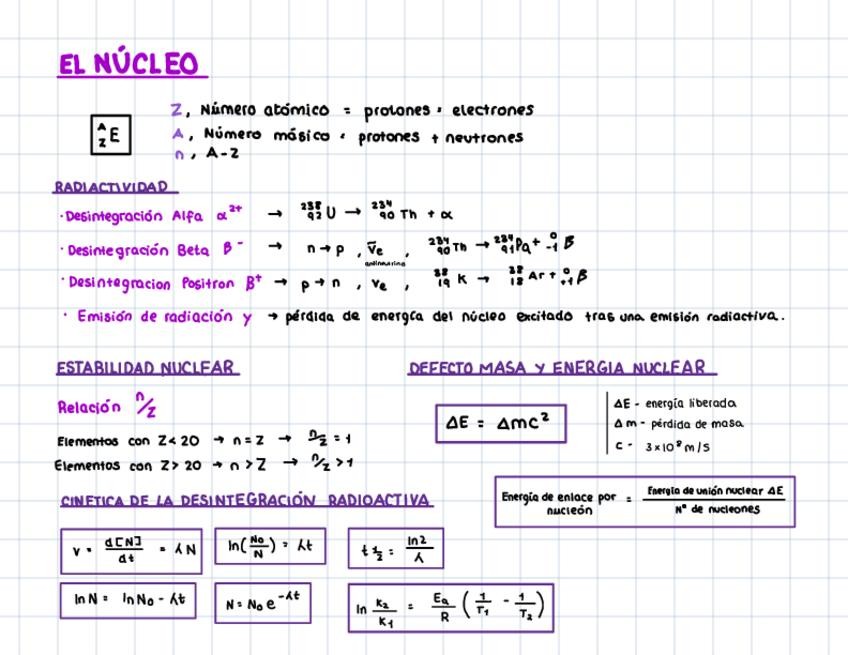 EL NÚCLEO
Z, Número atómico = protones = electrones
A
Z E
A, Número másico = protones + neutrones
n, A-Z
RADIACTIVIDAD
· Desintegración Alfa α²⁺ → ²³⁸₉₂U → ²³⁴₉₀Th + α
· Desintegración Beta β⁻ → n→p , ν̅e , ²³⁴₉₀Th → ²³⁴₉₁Pa + ⁰₋₁β
antineutrino
· Desintegracion Positron β⁺ → p→n , νe , ³⁸₁₉K → ³⁸₁₈Ar + ⁰₊₁β
· Emisión de radiación γ → pérdida de energía del núcleo excitado tras una emisión radiactiva.
ESTABILIDAD NUCLEAR
Relación n/z
Elementos con Z<20 → n=Z → n/z = 1
Elementos con Z>20 → n>Z → n/z >1
DEFECTO MASA Y ENERGIA NUCLEAR
ΔE = Δmc²
ΔE - energía liberada
Δm - pérdida de masa
C - 3×10⁸ m/s
Energía de enlace por nucleón = Energía de unión nuclear ΔE / Nº de nucleones
CINETICA DE LA DESINTEGRACIÓN RADIOACTIVA
v = d[N]/dt = λN
ln(N₀/N) = λt
t ½ = ln2/λ
ln N = ln N₀ - λt
N = N₀ e^-λt
ln K₂/K₁ = Ea/R (1/T₁ - 1/T₂)